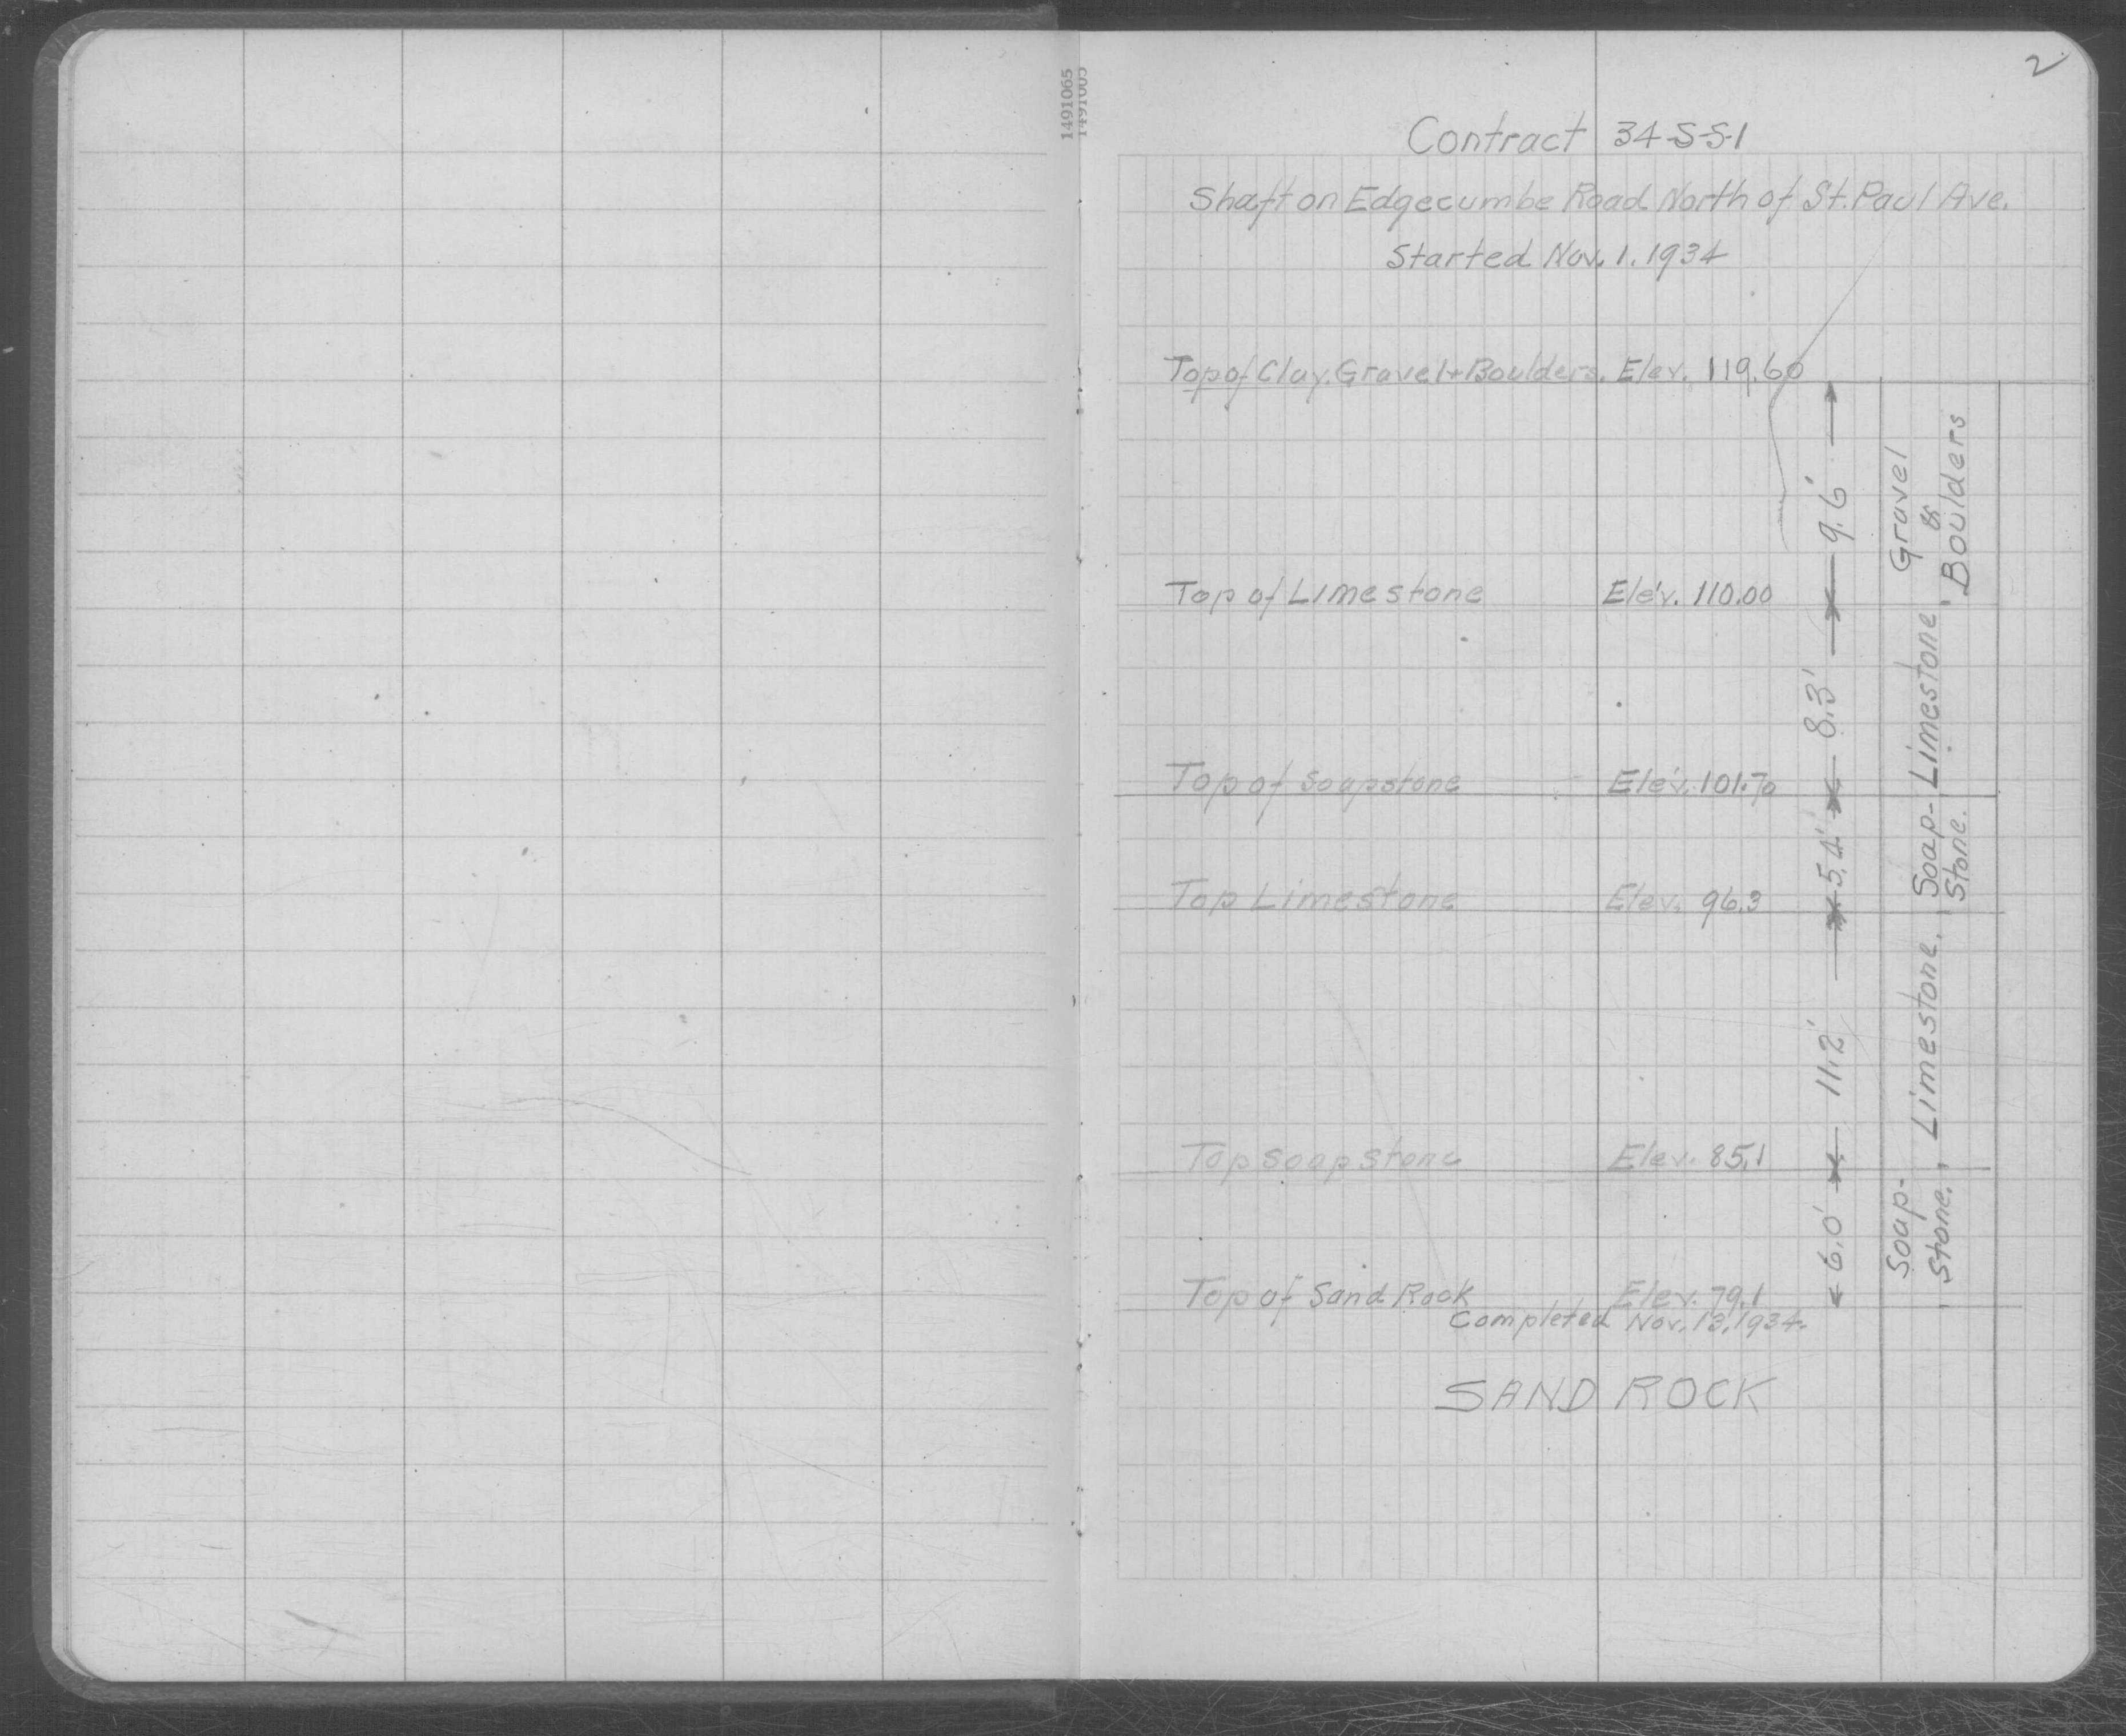 2
1491065
1491065
Contract 34-S-S-1
Shaft on Edgecumbe Road North of St. Paul Ave.
Started Nov. 1. 1934
Top of Clay. Gravel + Boulders. Elev. 119.60
9.6'
Gravel
&
Boulders
Top of Limestone Elev. 110.00
8.3'
Limestone
Top of Soapstone Elev. 101.70
5.4'
Soap-
Stone.
Top Limestone Elev. 96.3
11.2'
Limestone.
Top Soapstone Elev. 85.1
6.0'
Soap-
Stone.
Top of Sand Rock Elev. 79.1
Completed Nov. 13. 1934.
SAND ROCK